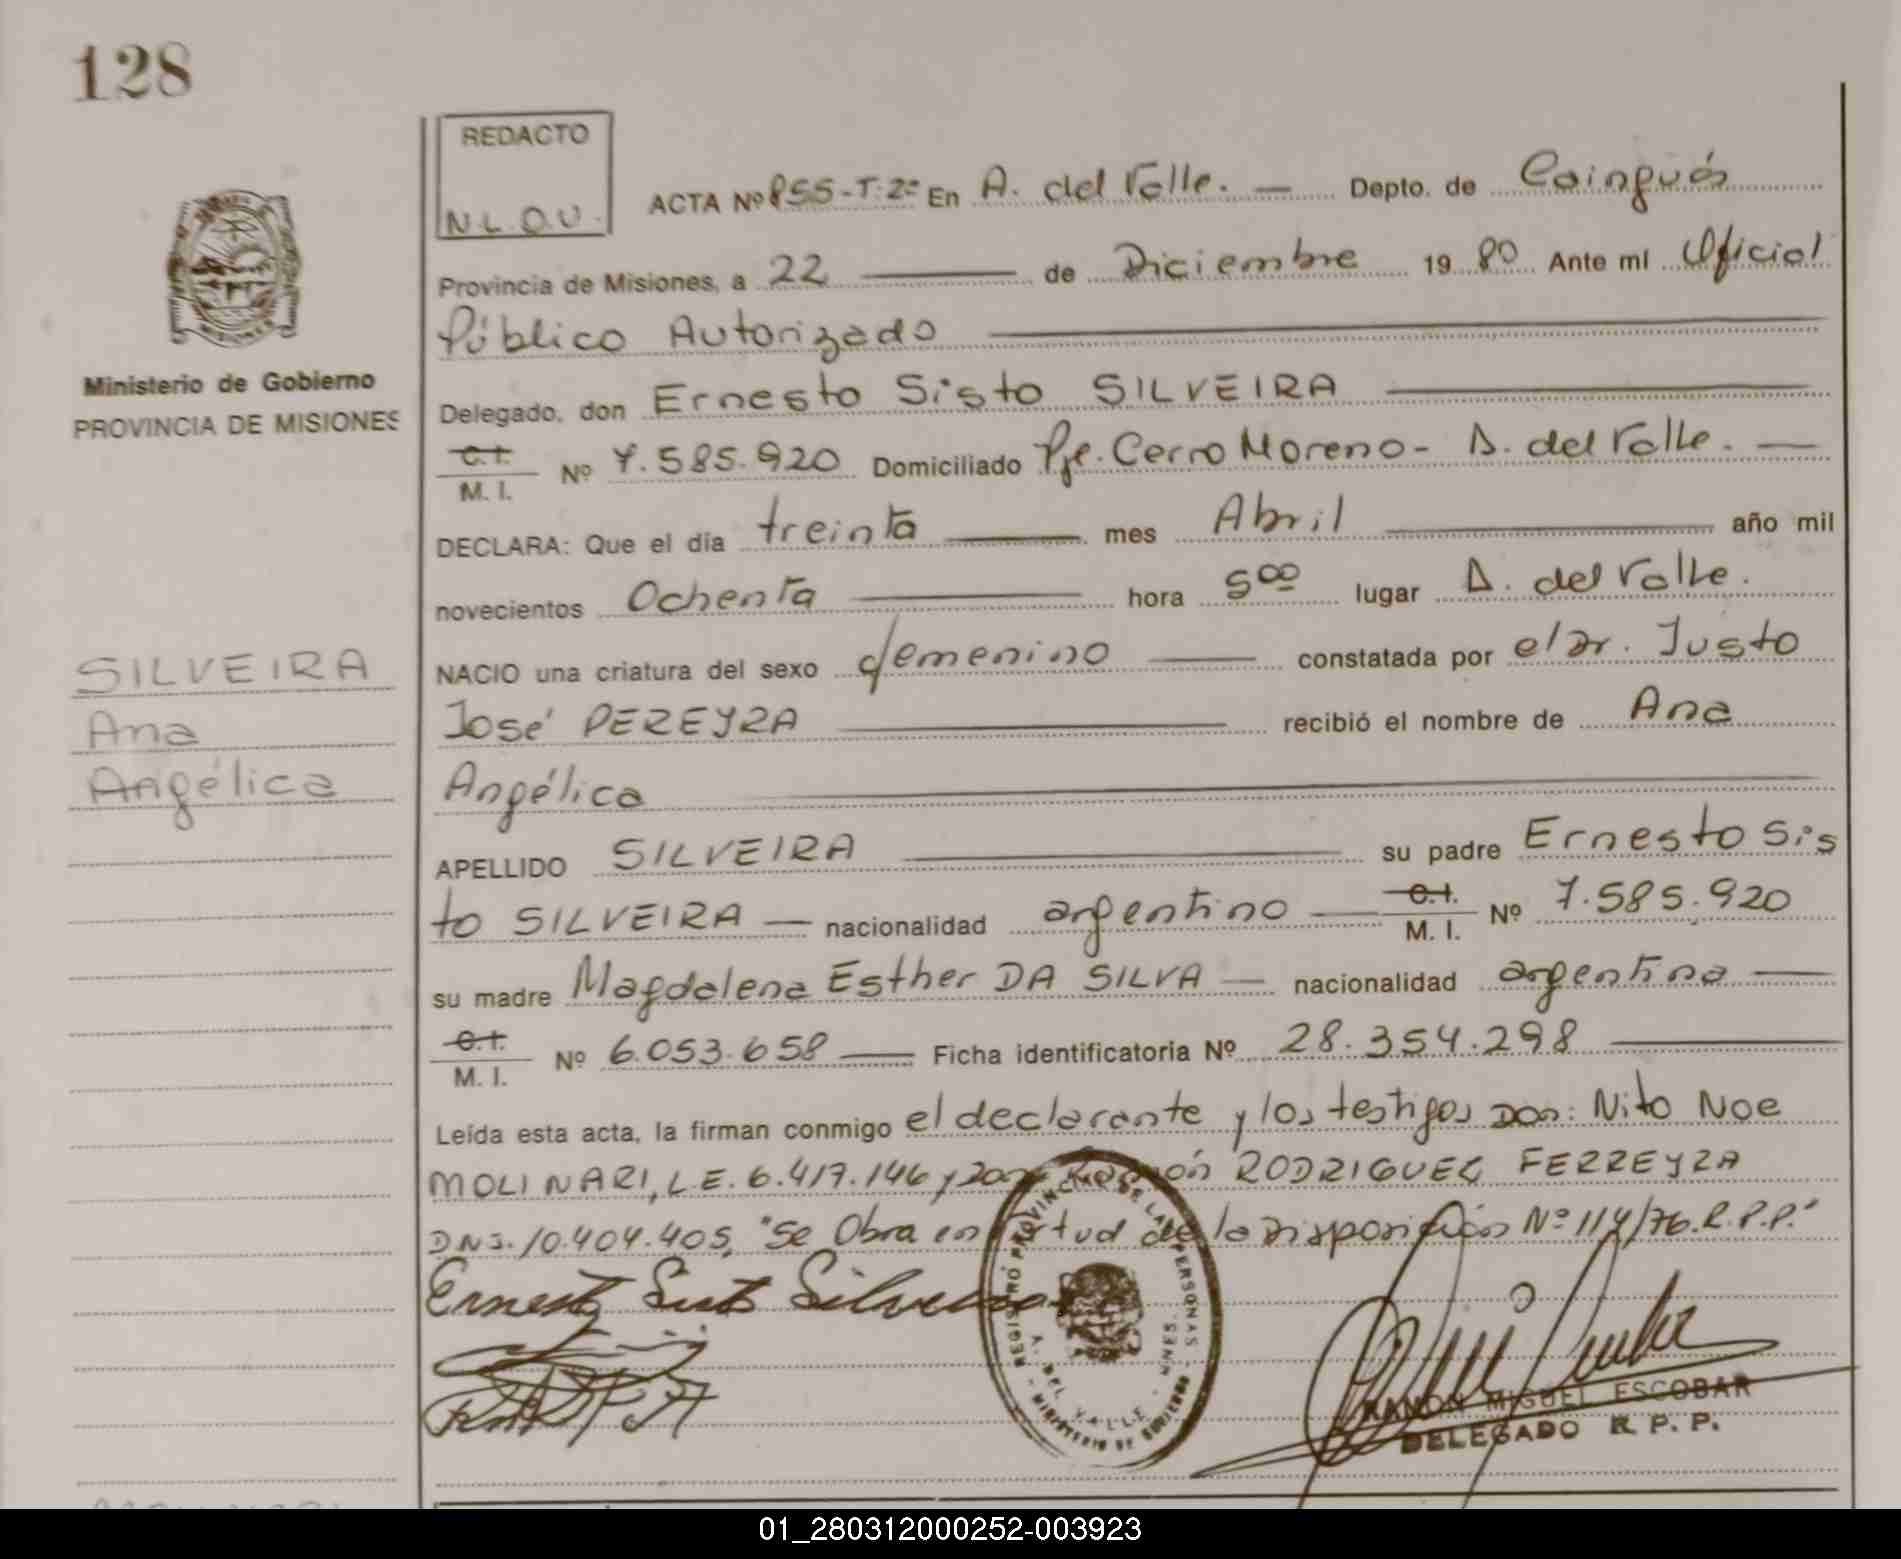 128
REDACTO
N.L.O.U.
ACTA Nº 855-T:2º En A. del Valle. — Depto. de Cainguás
Provincia de Misiones, a 22 — de Diciembre 1980 Ante mí Oficial
Público Autorizado
Ministerio de Gobierno
PROVINCIA DE MISIONES
Delegado, don Ernesto Sisto SILVEIRA
C.I.
M. I. Nº 7.585.920 Domiciliado Pje. Cerro Moreno - A. del Valle. —
DECLARA: Que el día treinta — mes Abril — año mil
novecientos Ochenta — hora 5ºº lugar A. del Valle.
SILVEIRA
Ana
Angélica
NACIO una criatura del sexo femenino — constatada por el Dr. Justo
José PEREYRA — recibió el nombre de Ana
Angélica
APELLIDO SILVEIRA — su padre Ernesto Sis
to SILVEIRA — nacionalidad argentino — C.I. M. I. Nº 7.585.920
su madre Magdalena Esther DA SILVA — nacionalidad argentina —
C.I.
M. I. Nº 6.053.658 — Ficha identificatoria Nº 28.354.298
Leída esta acta, la firman conmigo el declarante y los testigos Don: Nito Noe
MOLINARI, L.E. 6.417.146 y Don Ramón RODRIGUEZ FERREYRA
DNI. 10.404.405, "Se Obra en Virtud de la Disposición Nº 114/76.R.P.P."
Ernesto Sisto Silveira
REGISTRO PROVINCIAL DE LAS PERSONAS
A. DEL VALLE - MNES.
MINISTERIO DE GOBIERNO
RAMON MIGUEL ESCOBAR
DELEGADO R. P. P.
01_280312000252-003923